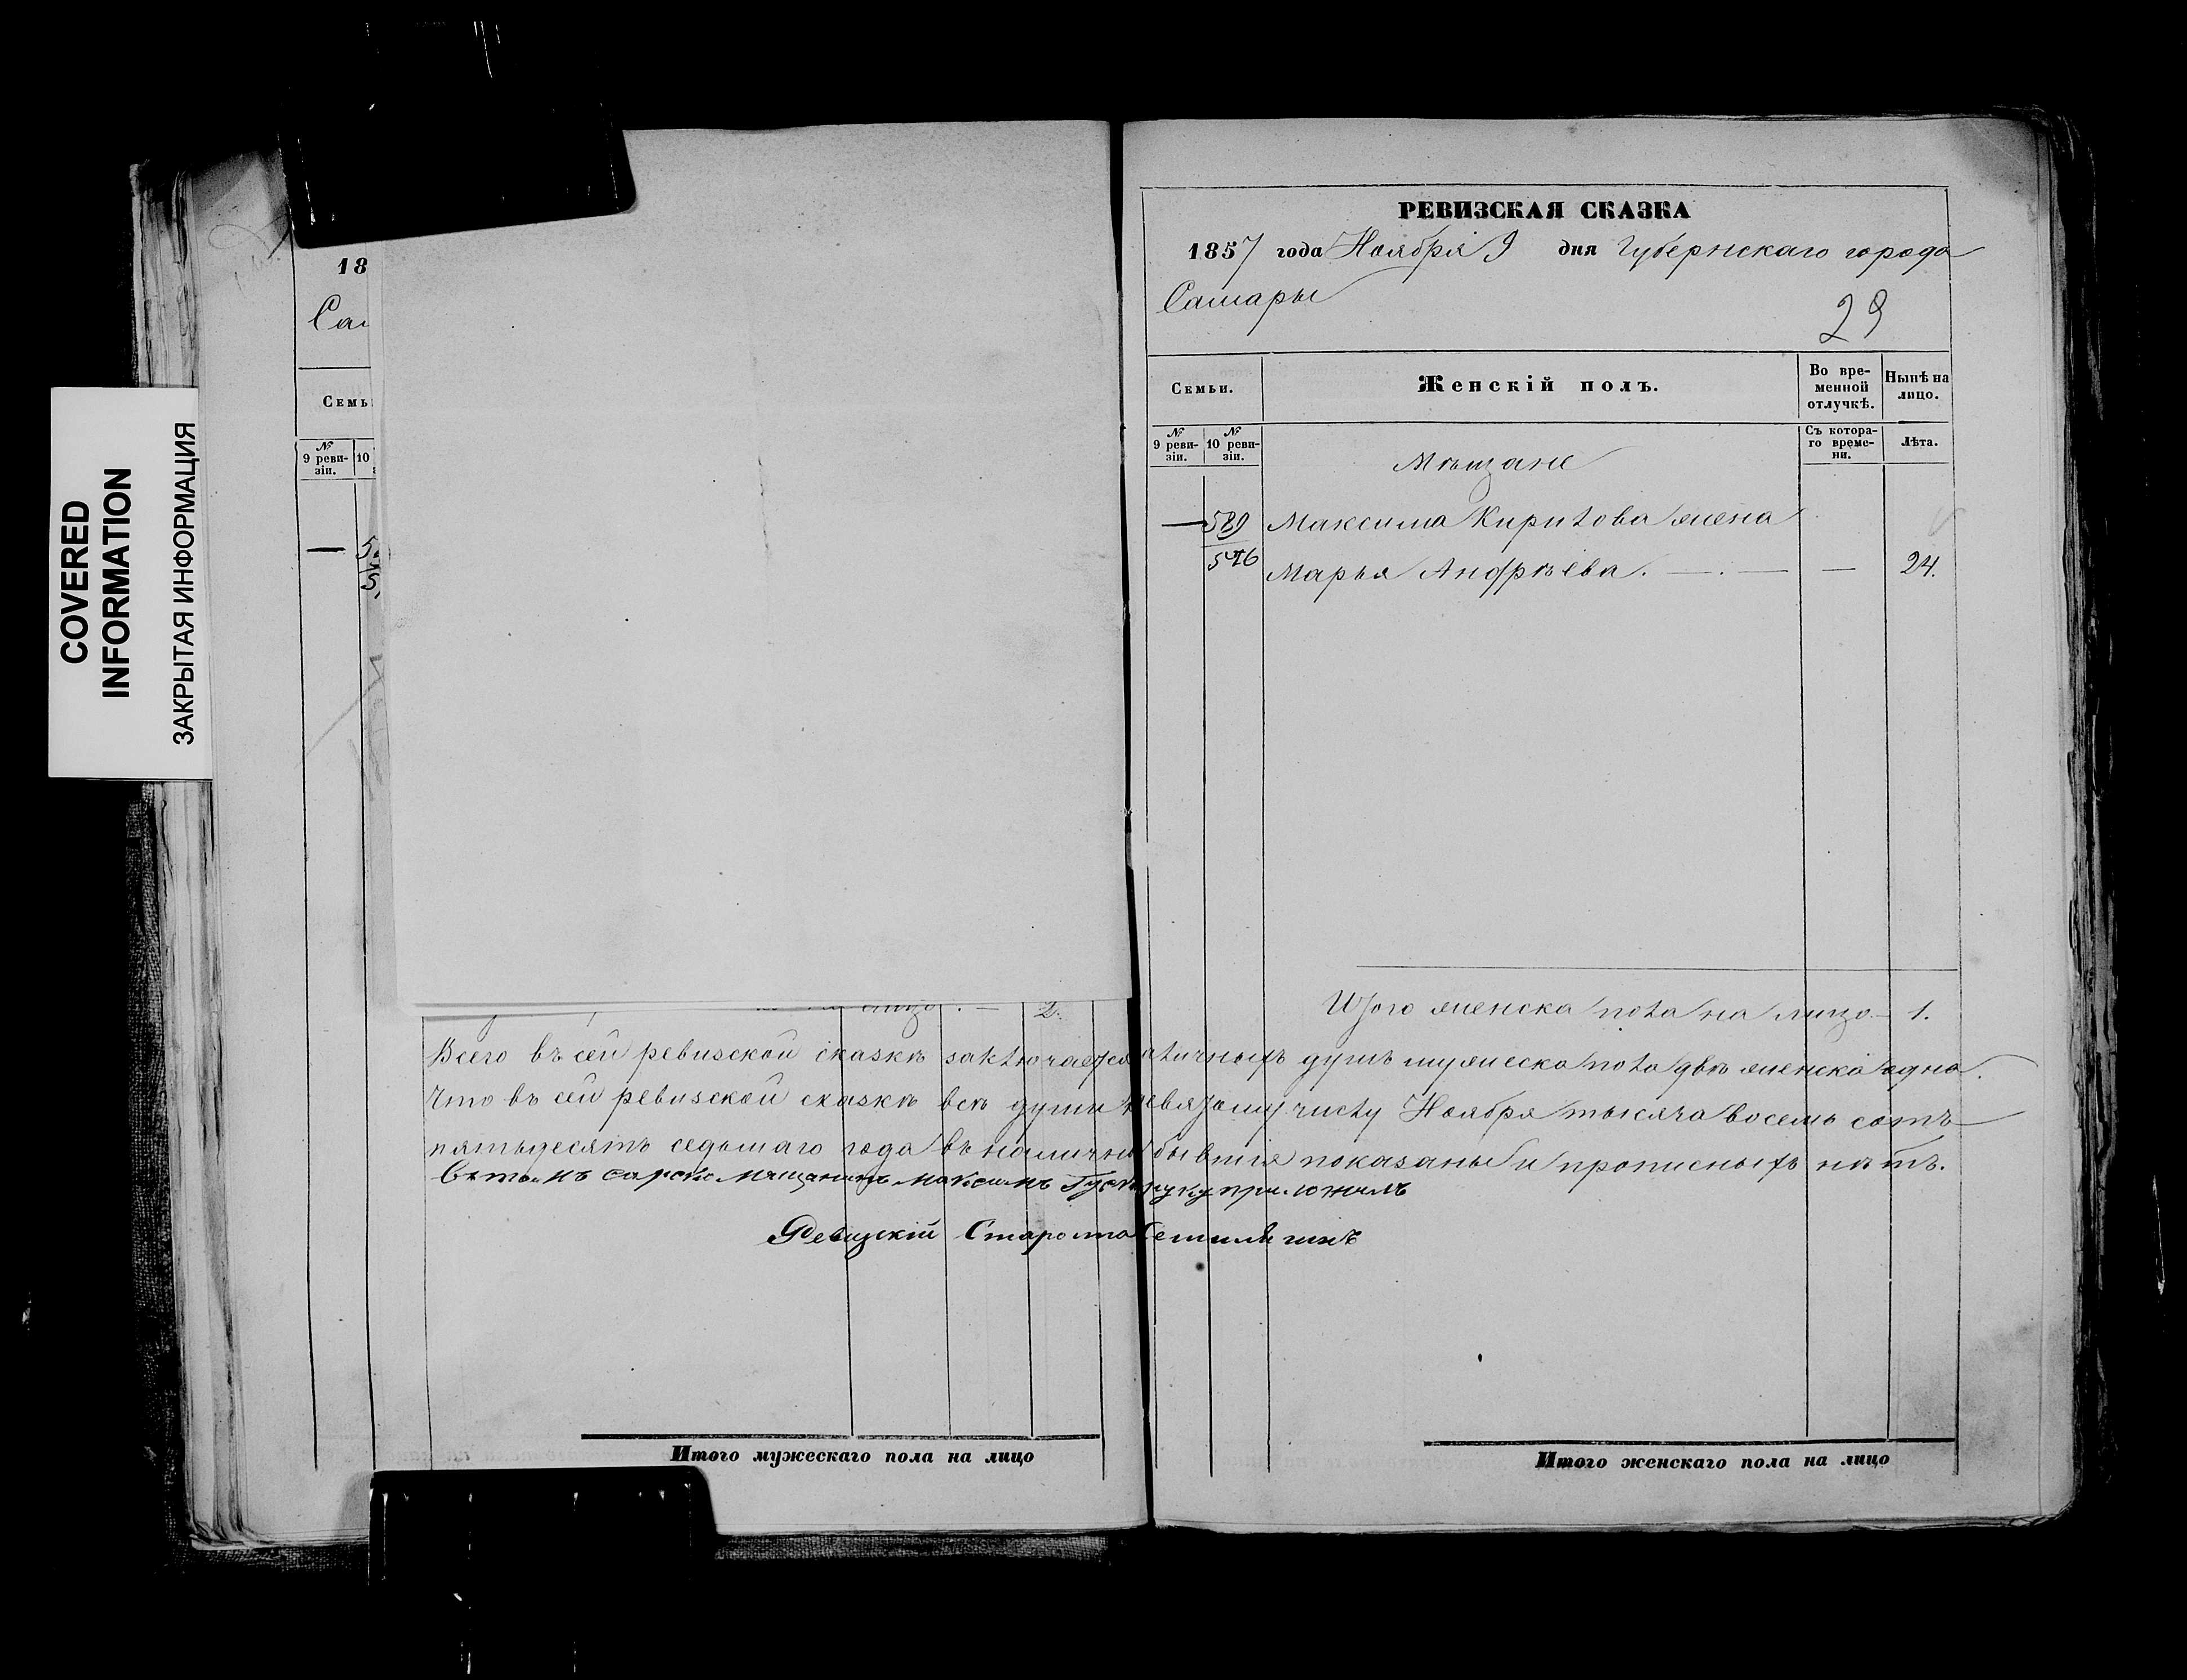 COVERED
INFORMATION
ЗАКРЫТАЯ ИНФОРМАЦИЯ
18
Сам
Семь
№
9 реви-
зіи.
10
—
РЕВИЗСКАЯ СКАЗКА
1857 года Ноября 9 дня Губернскаго города
Самары
29
Семьи.
Женскій полъ.
Во вре-
менной
отлучкѣ.
Нынѣ на
лицо.
№
9 реви-
зіи.
№
10 реви-
зіи.
Съ котора-
го време-
ни.
Лѣта.
Мѣщане
— 589 Максима Кирилова жена
546 Марья Андрѣева. — . — — 24.
2.
Итого женска пола на лицо — 1.
Всего въ сей ревизской сказкѣ заключается наличныхъ душъ мужеска пола двѣ женска одна.
Что въ сей ревизской сказкѣ всѣ души къ девятому числу Ноября тысяча восемь сотъ
пятьдесятъ седьмаго года въ наличн бывшія показаны и прописныхъ нѣтъ.
мѣщанинъ максимъ руку приложилъ
Ревизскій Староста
Итого мужескаго пола на лицо
Итого женскаго пола на лицо